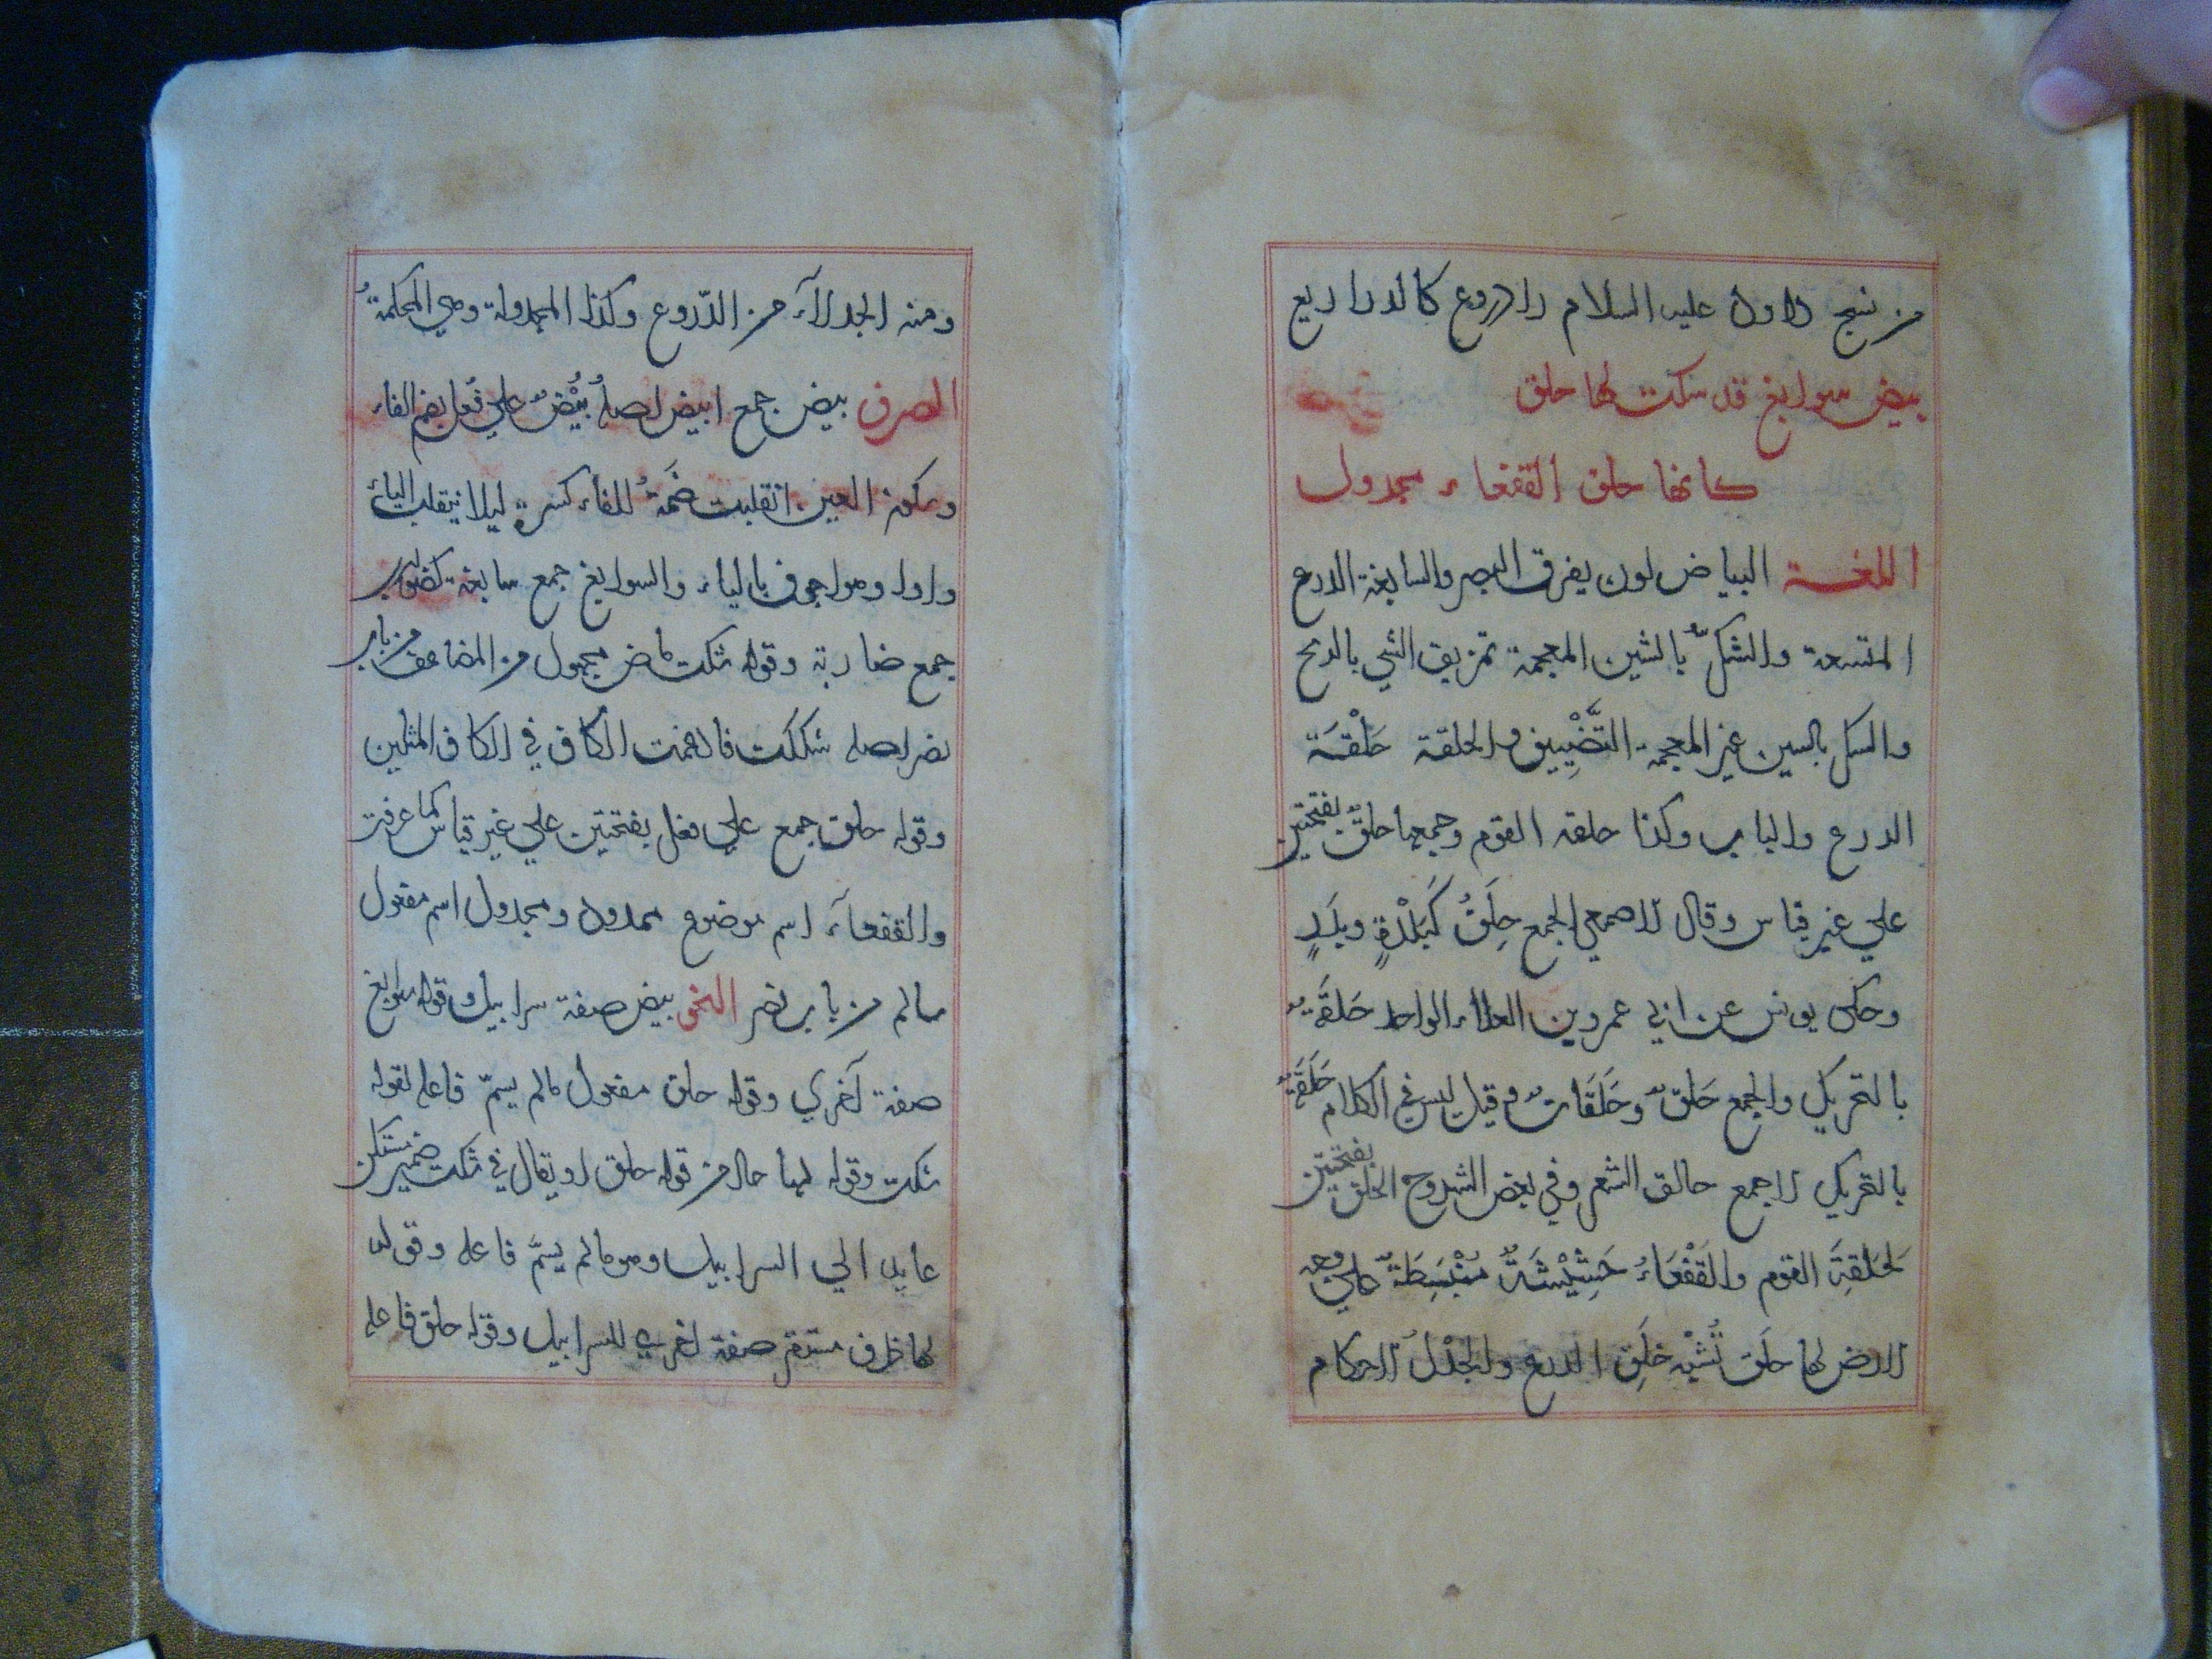 من نسج داود عليه السلام والدروع كالدراريع
بيض سوابغ قد شكت لها حلق
كانها حلق القفعاء مجدول
اللغة البياض لون يفرق البصر والسابغة الدرع
المتسعة والشكّ بالشين المعجمة تمزيق الشي بالرمح
والسك بالسين غير المعجمة التَّضْيِيق والحلقة حَلْقَة
الدرع والباب وكذا حلقة القوم وجمعها حلَقٌ بفتحتين
علي غير قياس وقال الاصمعي الجمع حِلَقٌ كَبَدْرَةٍ وبِدَرٍ
وحكى يونس عن ابي عمرو بن العلاء الواحد حَلَقَةٌ
بالتحريك والجمع حَلَقٌ وحَلَقَاتٌ وقيل ليس في الكلام حَلَقَةٌ
بالتحريك الا جمع حالق الشعر وفي بعض الشروح الحلق بفتحتين
لحَلقةِ القوم والقَفْعَاءُ حَشِيْشَةٌ مُنْبَسِطَةٌ علي وجه
الارض لها حلَق تُشْبِه حَلَق الدرع والجَدْلُ الاحكام
ومنه الجدلاء من الدّروع وكذا المجدولة وهي المحكمةُ
الصرف بيض جمع ابيض اصلُهُ بُيْضٌ علي فُعل بضم الفاء
وسكون العين انقلبت ضَمَّةُ الفاء كسرة ليلا ينقلب الياءُ
واوا وهو اجوف بالياء والسوابغ جمع سابغة كضوارب
جمع ضاربة وقوله شكت ماض مجهول من المضاعف من باب
نصر اصله شككت فادغمت الكاف في الكاف المثلين
وقوله حلق جمع علي فعل بفتحتين علي غير قياس كما عرفت
والقفعاء اسم موضوع ممدود ومجدول اسم مفعول
سالم من باب نصر النحو بيض صفة سرابيل وقوله سوابغ
صفة اخري وقوله حلق مفعول مالم يسمّ فاعله لقوله
شكت وقوله لها حال من قوله حلق او يقال في شكت ضمير مستكن
عايد الي السرابيل وهو مالم يسمّ فاعله وقوله
لها ظرف مستقر صفة اخري للسرابيل وقوله حلق فاعله